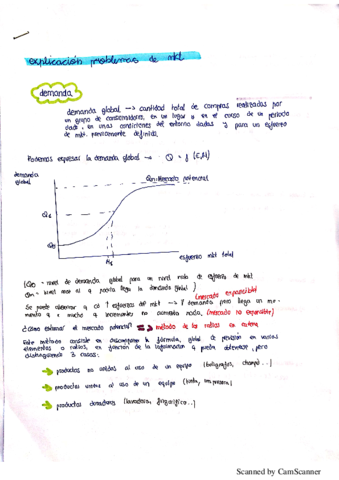 explicación problemas de mkt
demanda
demanda global → cantidad total de compras realizadas por
un grupo de consumidores, en un lugar y en el curso de un período
dado, en unas condiciones del entorno dadas y para un esfuerzo
de mkt. previamente definido.
Podemos expresar la demanda global → Q = f (E,M)
demanda
global
Qm mercado potencial
Qt
Q0
Mt
esfuerzo mkt total
Q0 = nivel de demanda global para un nivel nulo de esfuerzo de mkt
Qm = nivel max al q podría llegar la demanda global
(mercado expansible)
Se puede observar q a ↑ esfuerzos del mkt → ↑ demanda pero llega un mo-
mento q x mucho q incrementes no aumenta nada. (mercado no expansible)
¿Cómo estimar el mercado potencial? método de los ratios en cadena
Este método consiste en descomponer la fórmula global de previsión en varios
elementos o ratios, en función de la información q pueda obtenerse, pero
distinguiendo 3 casos:
productos no unidos al uso de un equipo (bolígrafos, champú...)
productos unidos al uso de un equipo (tinta, impresora)
productos duraderos (lavadora, frigorífico...)
Scanned by CamScanner